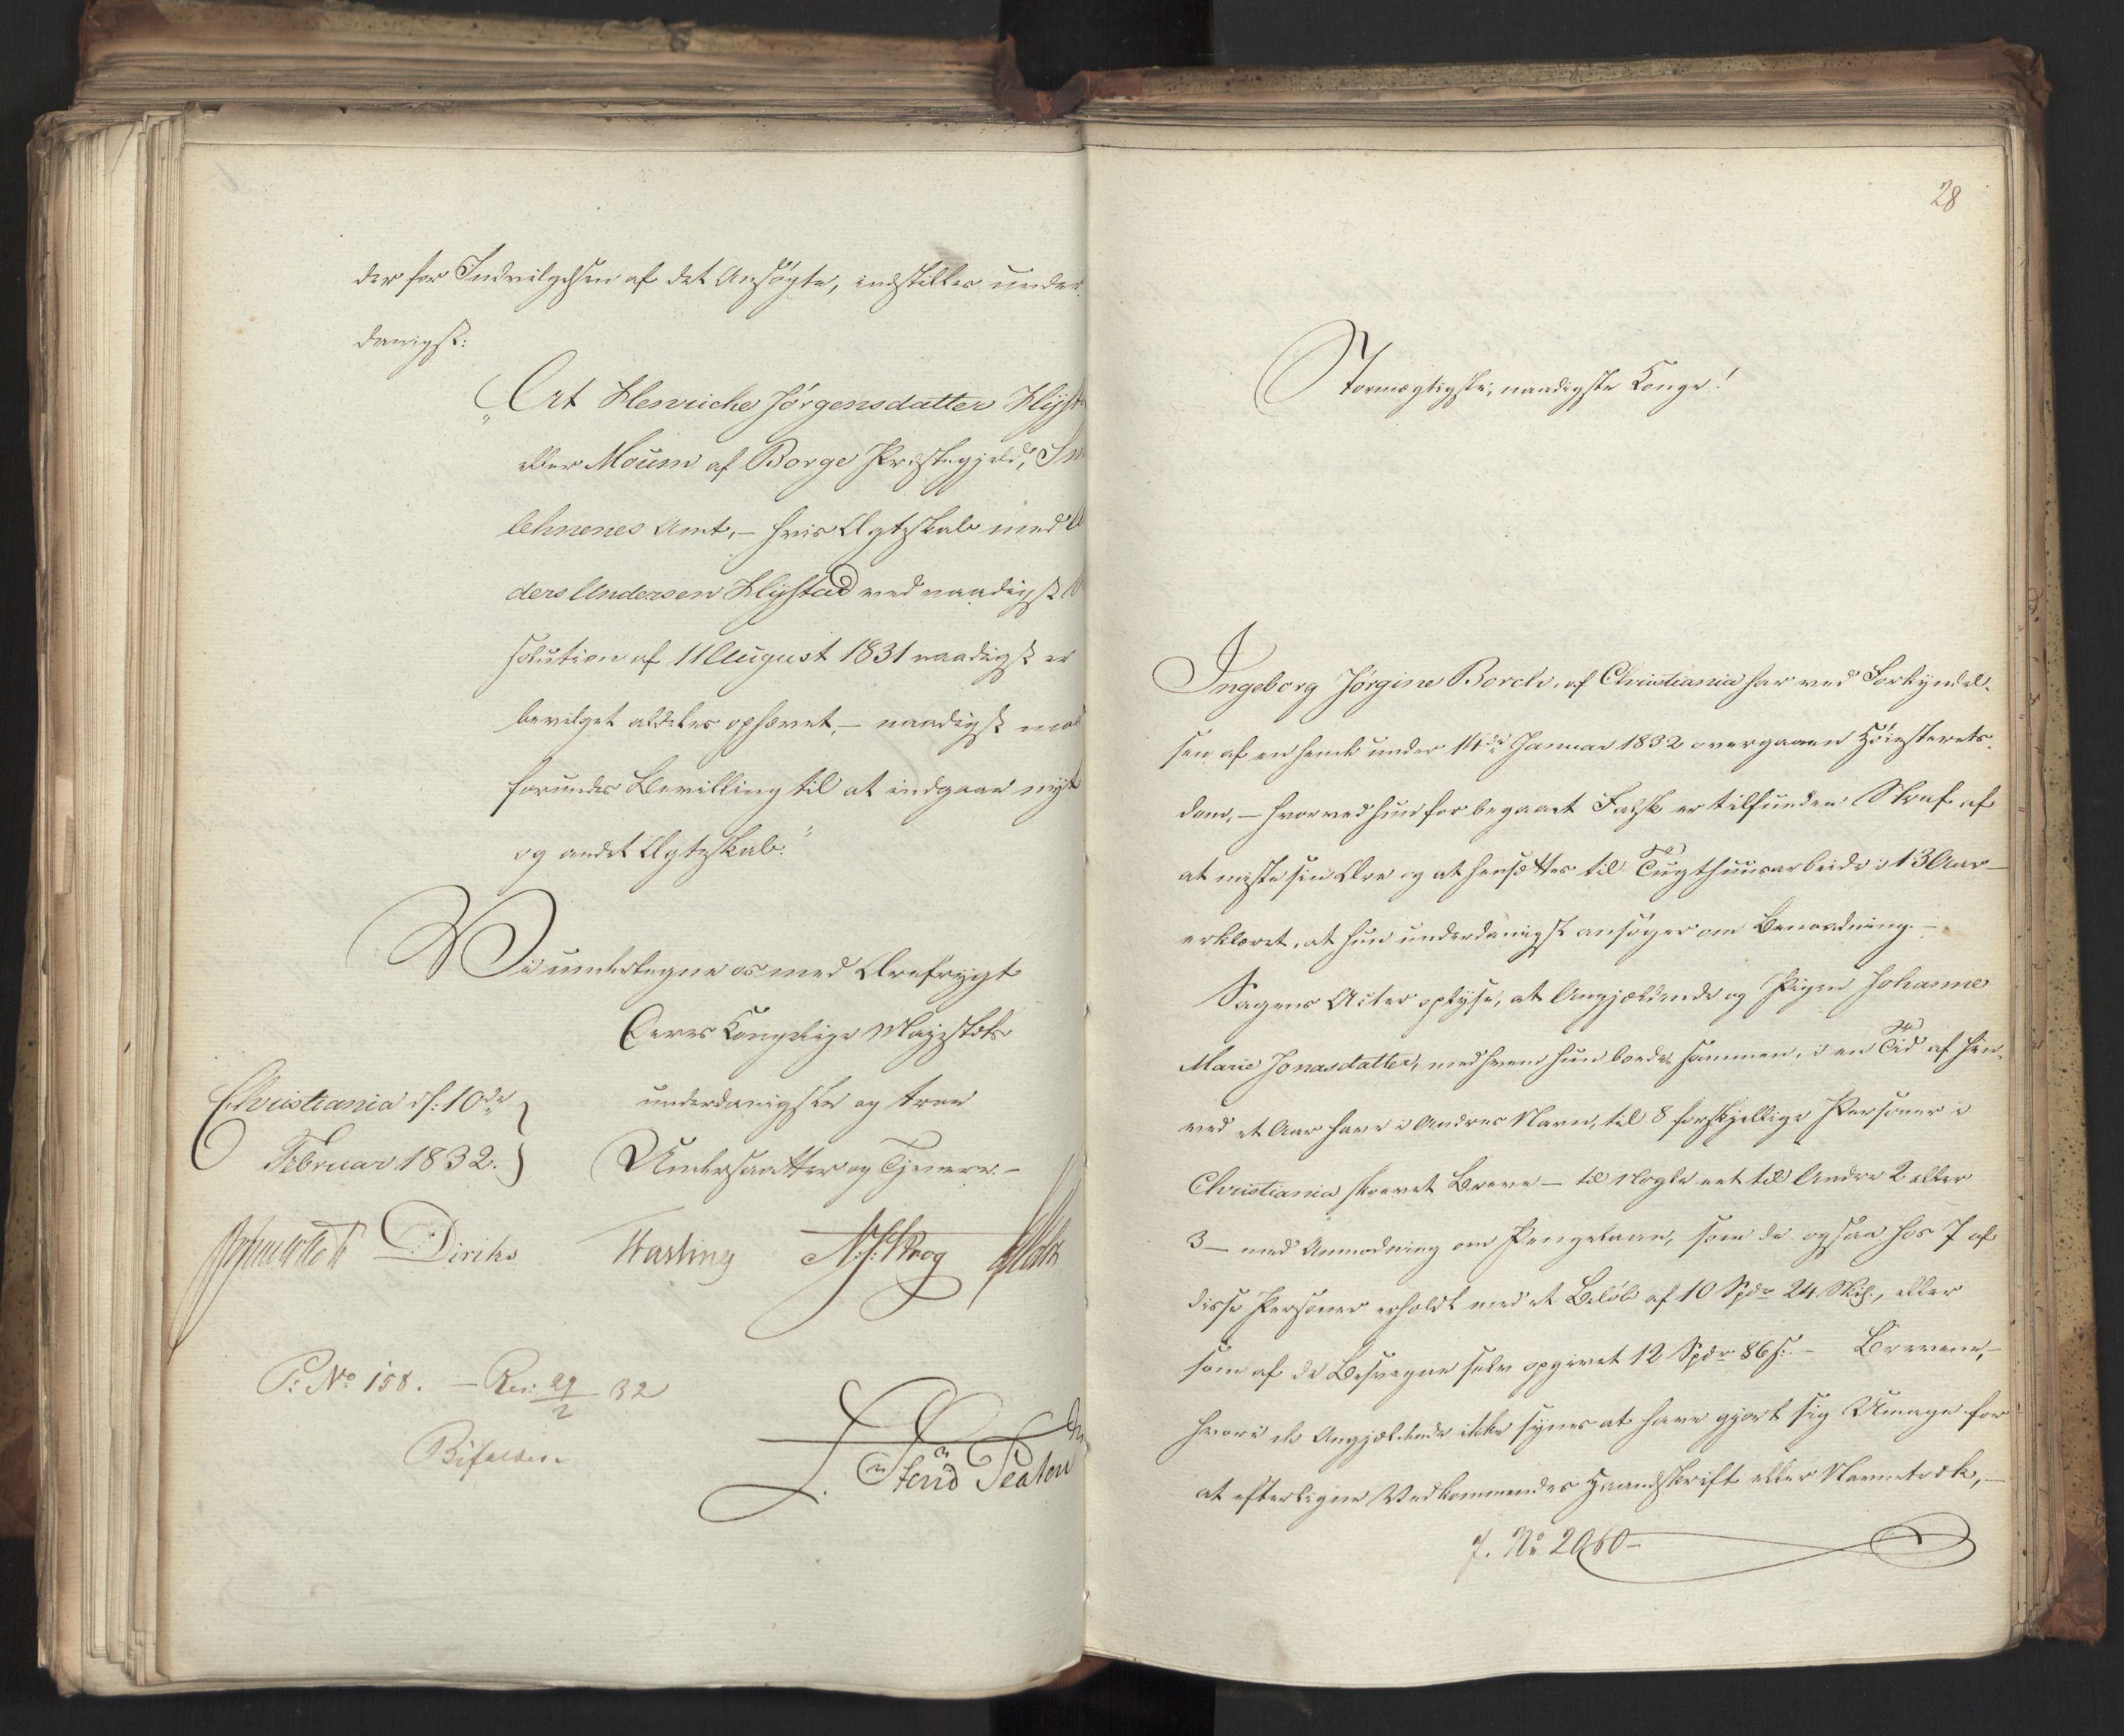 der for Indvilgelsen af det Ansøgte, indstilles under
danigst:
"At Henriche Jörgensdatter Klyst
eller Moum af Borge Præstegjeld, Sm
lehnenes Amt, - hvis Ægteskab med A
ders Andersen Klystad ved naadigst
solution af 11 August 1831 naadigst er
bevilget aldeles ophævet, - naadigst maa
forundes Bevilling til at indgaae nyt
og andet Ægteskab."
Vi undertegne os med Ærefrygt
Deres Kongelige Majestæts
Christiania d: 10de
underdanigste og troe
Februar 1832.
Undersaatter og Tjenere. -
Diriks
P: No 158. - Res: 29/2 32
Bifaldes.
28
Stormægtigste, naadigste Konge!
Ingeborg Jörgine Borch, af Christiania har ved Forkyndel-
sen af en hende under 14de Januar 1832 overgaaen Höiesterets-
dom, - hvorved hun for begaaet Falsk er tilfunden Straf af
at miste sin Ære og at hensættes til Tugthuusarbeide i 13 Aar -
erklæret, at hun underdanigst ansöger om Benaadning. -
Sagens Acter oplyse, at Angjældende og Pigen Johanne
Marie Jonasdatter, med hvem hun boede sammen, i en Tid af hen-
ved et Aar have i Andres Navn, til 8 forskjellige Personer i
Christiania skrevet Breve - til Nogle eet til Andre 2 eller
3 - med Anmodning om Pengelaan, som de ogsaa hos 7 af
disse Personer erholdt med et Belöb af 10 Spdr 24 Skil., eller
som af de Besvegne selv opgivet 12 Spdr 86 s. - Brevene, -
hvori de Angjældende ikke synes at have gjort sig Umage for
at efterligne Vedkommendes Haandskrift eller Navnetræk, -
J. No 2060 -